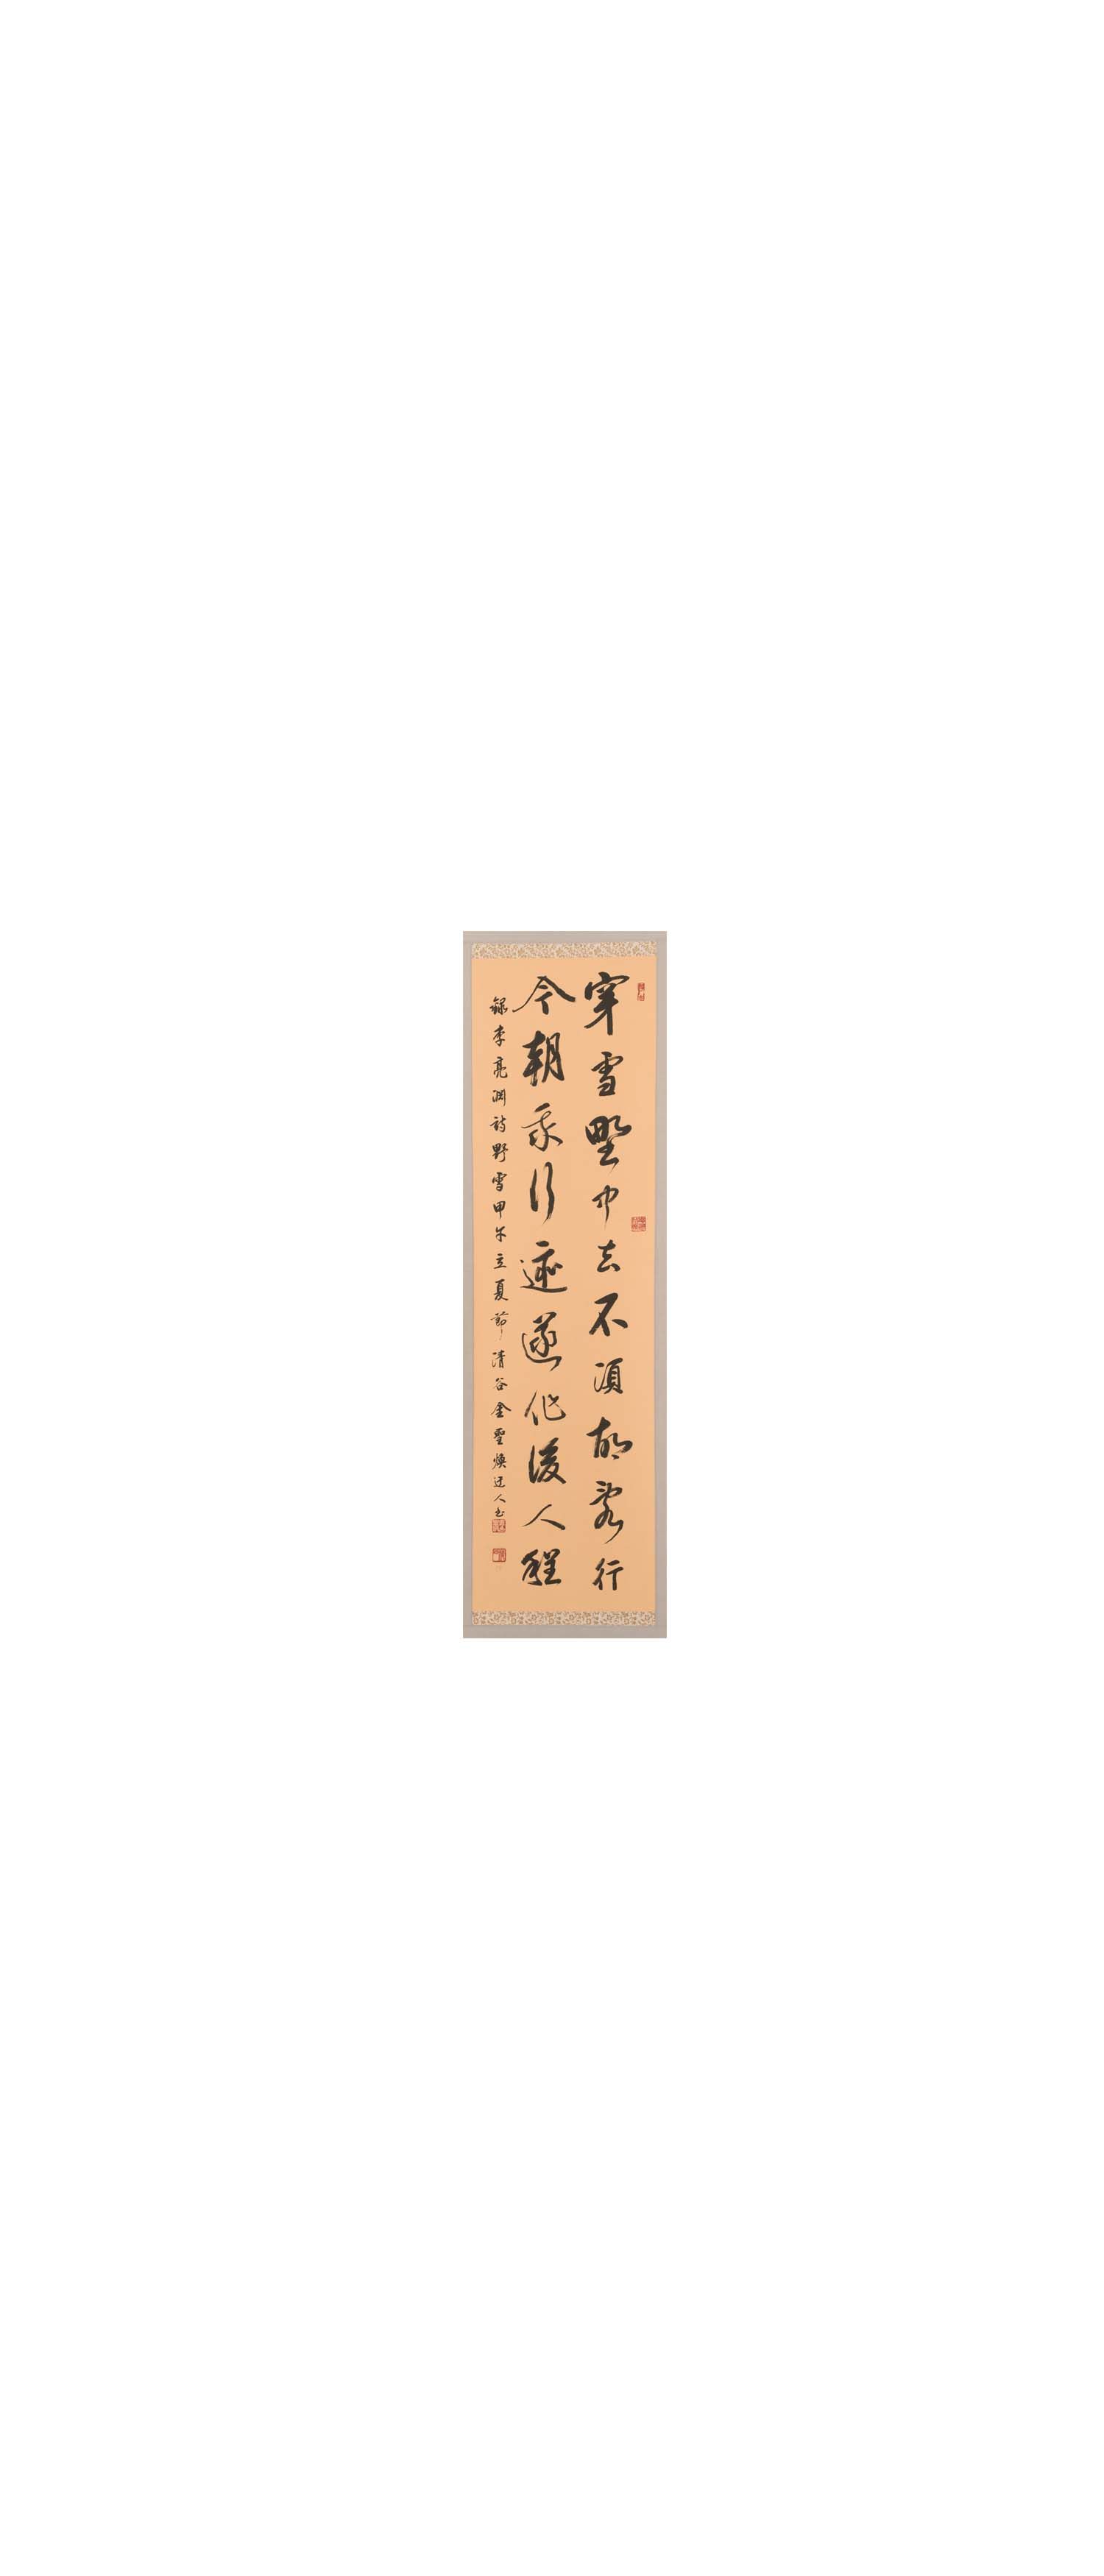 穿雪野中去不須胡亂行
今朝我行迹遂作後人程
錄李亮淵詩野雪甲午立夏節清谷金聖煥迁人書